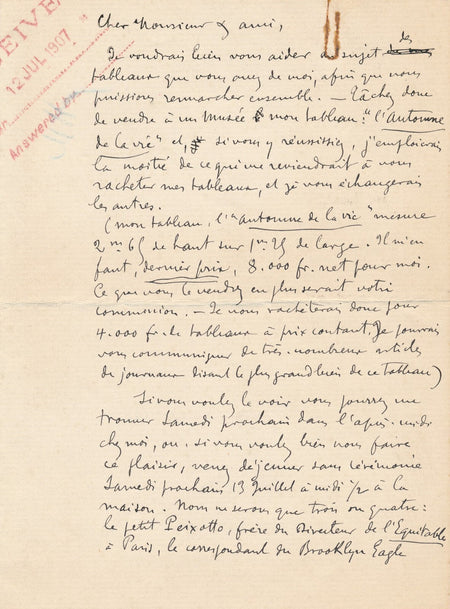 CEIVE
12 JUL 1907
Answered on
Cher Monsieur & ami,
Je voudrais bien vous aider au sujet des
tableaux que vous avez de moi, afin que nous
puissions remarcher ensemble. — Tâchez donc
de vendre à un Musée mon tableau: "l'Automne
de la vie" et, si vous y réussissez, j'emploierais
la moitié de ce qui me reviendrait à vous
racheter mes tableaux, et je vous échangerais
les autres.
(mon tableau, l'"automne de la vie" mesure
2m 65 de haut sur 1m 25 de large. Il m'en
faut, dernier prix, 8.000 fr. net pour moi.
Ce que vous le vendrez en plus serait votre
commission. — Je vous rachèterais donc pour
4.000 fr. de tableaux à prix coutant. Je pourrais
vous communiquer de très-nombreux articles
de journaux disant le plus grand bien de ce tableau)
Si vous voulez le voir vous pourrez me
trouver Samedi prochain dans l'après-midi
chez moi, ou, si vous voulez bien nous faire
ce plaisir, venez déjeuner sans cérémonie
Samedi prochain 13 Juillet à midi 1/2 à la
maison. Nous ne serons que trois ou quatre:
le petit Peixotto, frère du Directeur de l'Equitable
à Paris, le correspondant du Brooklyn Eagle